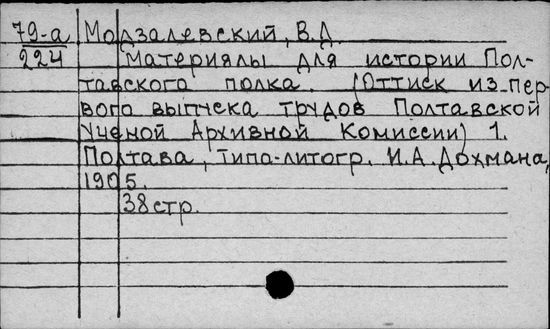 79-а Модзалевский, В.Д.
224 Материялы для истории Пол-
тавского полка. (Оттиск из пер-
вого выпуска трудов Полтавской
Ученой Архивной Комиссии) 1.
Полтава, типо-литогр. И.А.Дохмана,
1905.
38 стр.